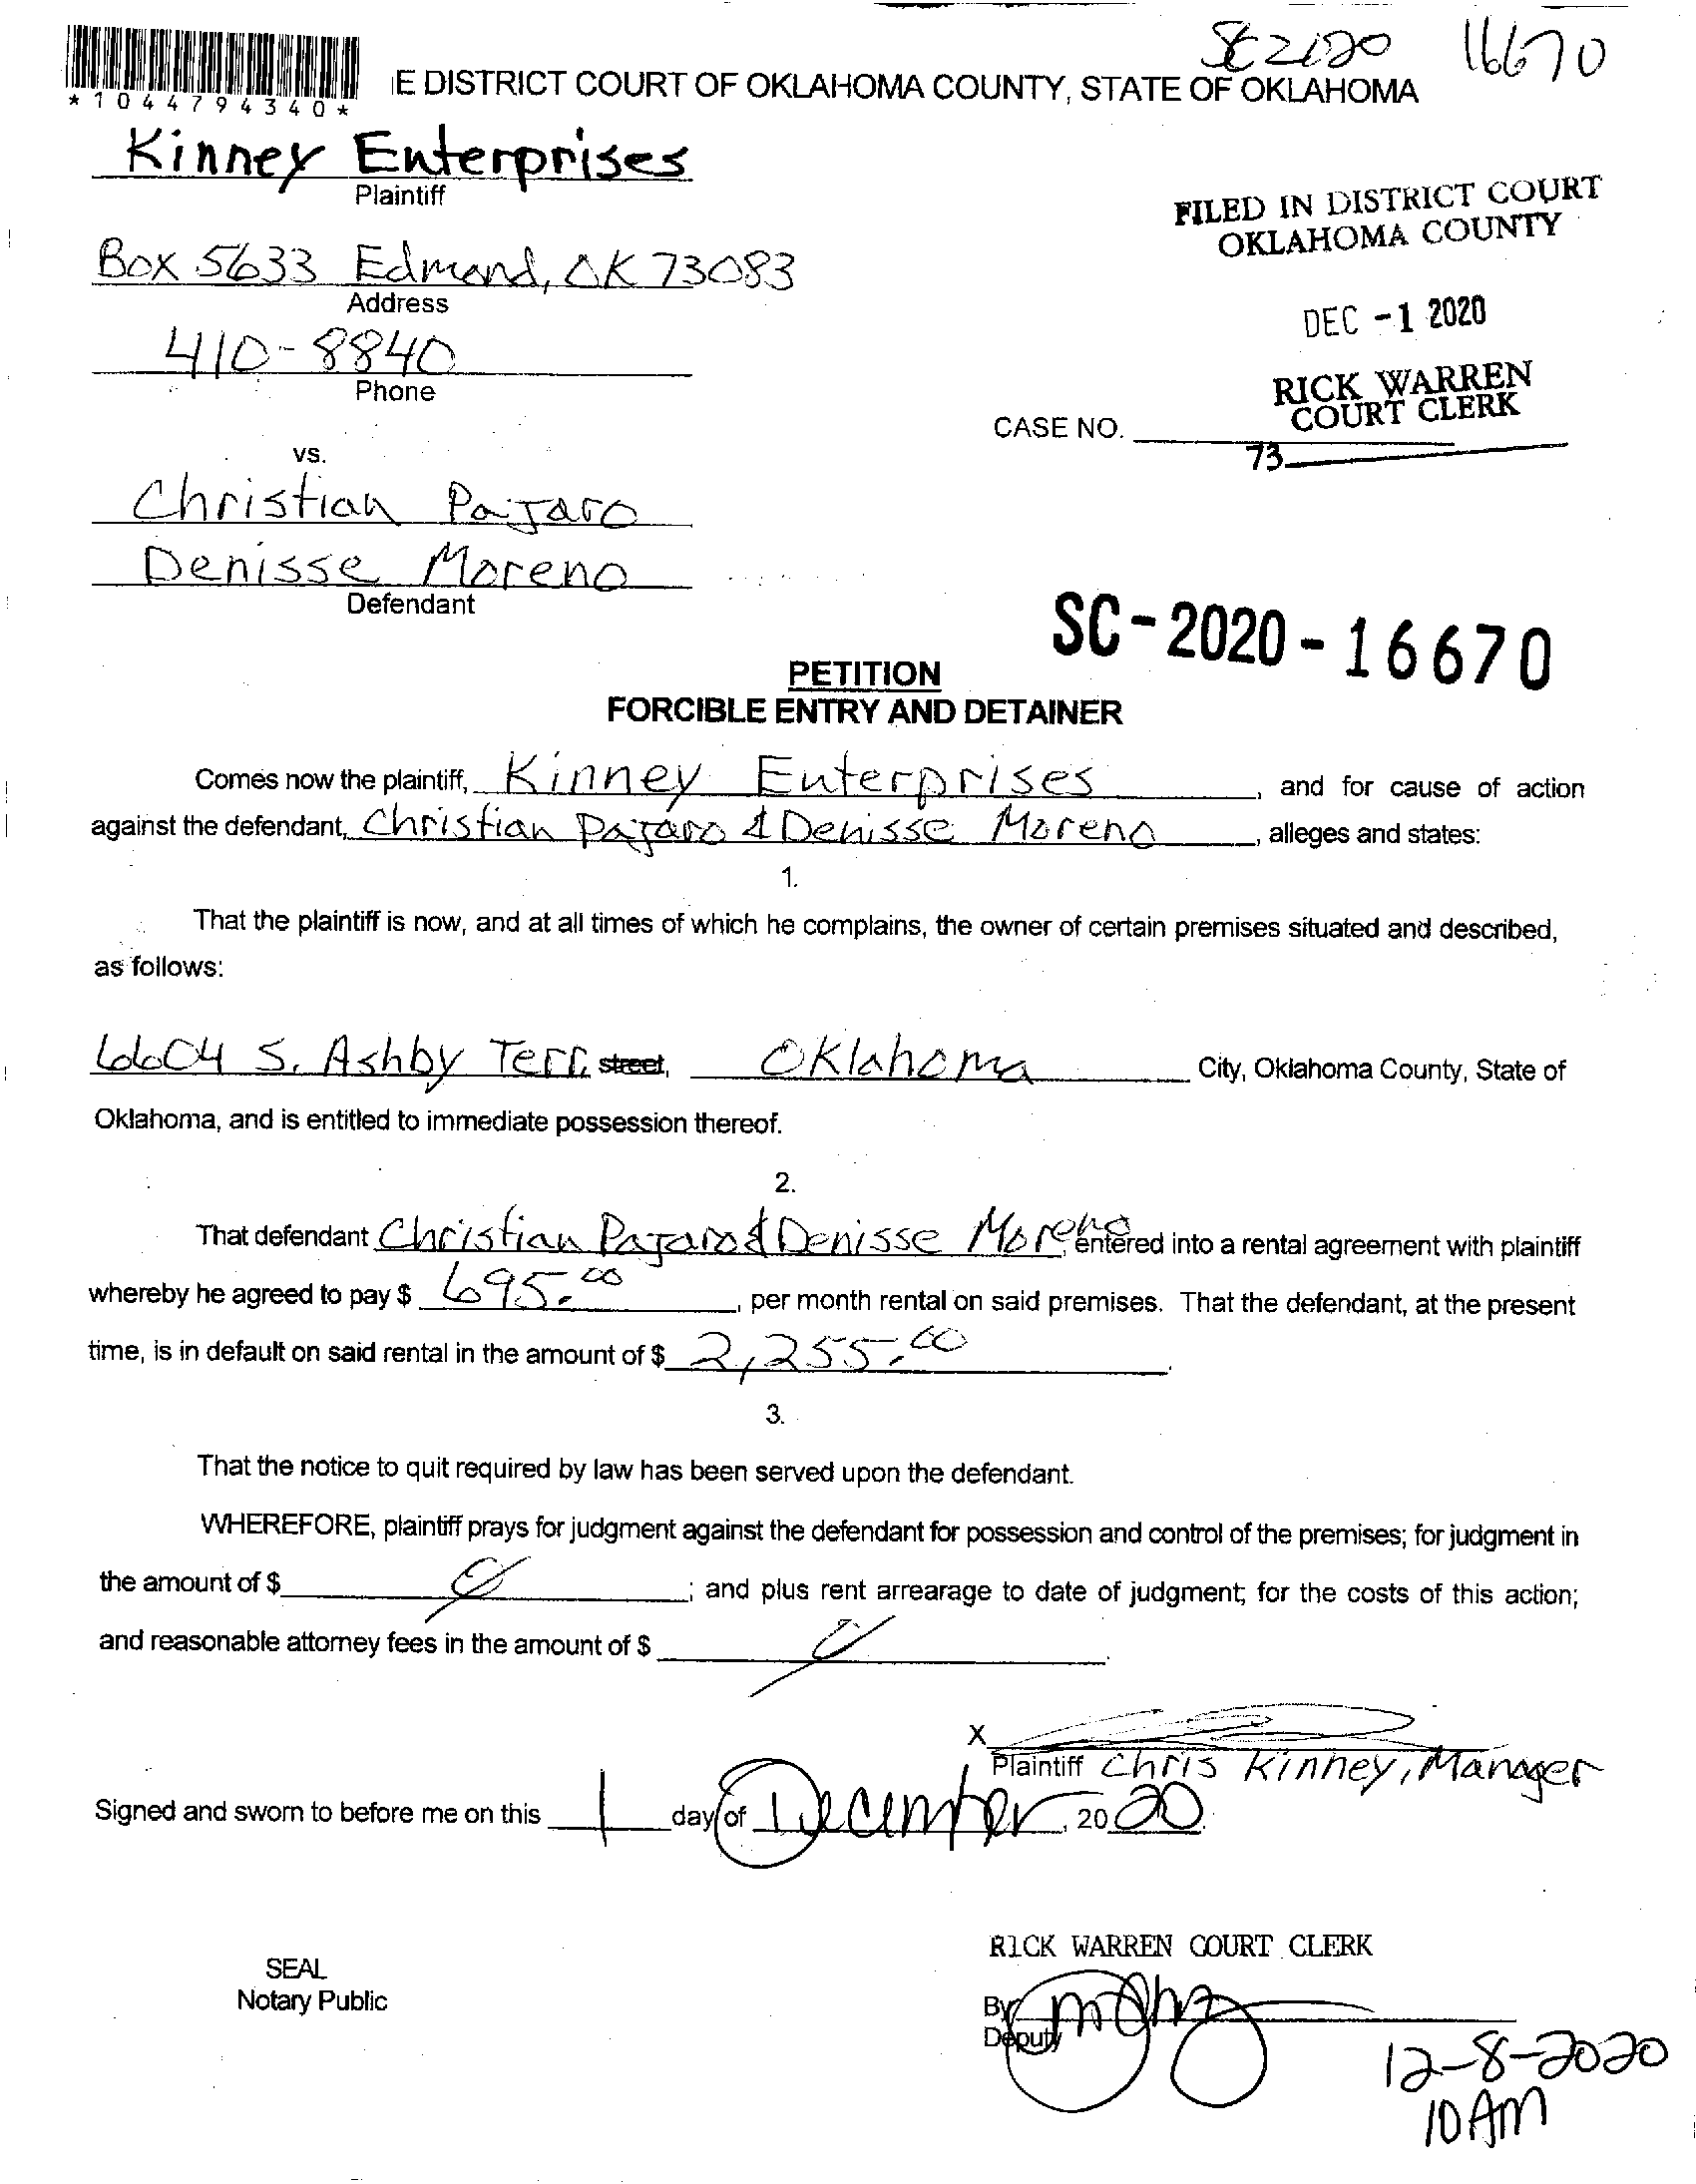 SC2020 16670
*1044794340*
E DISTRICT COURT OF OKLAHOMA COUNTY, STATE OF OKLAHOMA
Kinney Enterprises
Plaintiff
FILED IN DISTRICT COURT
OKLAHOMA COUNTY
Box 5633 Edmond, OK 73083
Address
DEC -1 2020
410-8840
Phone
RICK WARREN
COURT CLERK
CASE NO.
73
vs.
Christian Pajaro
Denisse Moreno
Defendant
SC-2020-16670
PETITION
FORCIBLE ENTRY AND DETAINER
Comes now the plaintiff, Kinney Enterprises, and for cause of action
against the defendant, Christian Pajaro & Denisse Moreno, alleges and states:
1.
That the plaintiff is now, and at all times of which he complains, the owner of certain premises situated and described,
as follows:
6604 S. Ashby Terr. street, Oklahoma City, Oklahoma County, State of
Oklahoma, and is entitled to immediate possession thereof.
2.
That defendant Christian Pajaro & Denisse Moreno, entered into a rental agreement with plaintiff
whereby he agreed to pay $ 695.00, per month rental on said premises. That the defendant, at the present
time, is in default on said rental in the amount of $ 2,255.00.
3.
That the notice to quit required by law has been served upon the defendant.
WHEREFORE, plaintiff prays for judgment against the defendant for possession and control of the premises; for judgment in
the amount of $ Ø; and plus rent arrearage to date of judgment; for the costs of this action;
and reasonable attorney fees in the amount of $ Ø.
X
Plaintiff Chris Kinney, Manager
Signed and sworn to before me on this 1 day of December, 2020.
RICK WARREN COURT CLERK
SEAL
Notary Public
By
Deputy
12-8-2020
10 AM